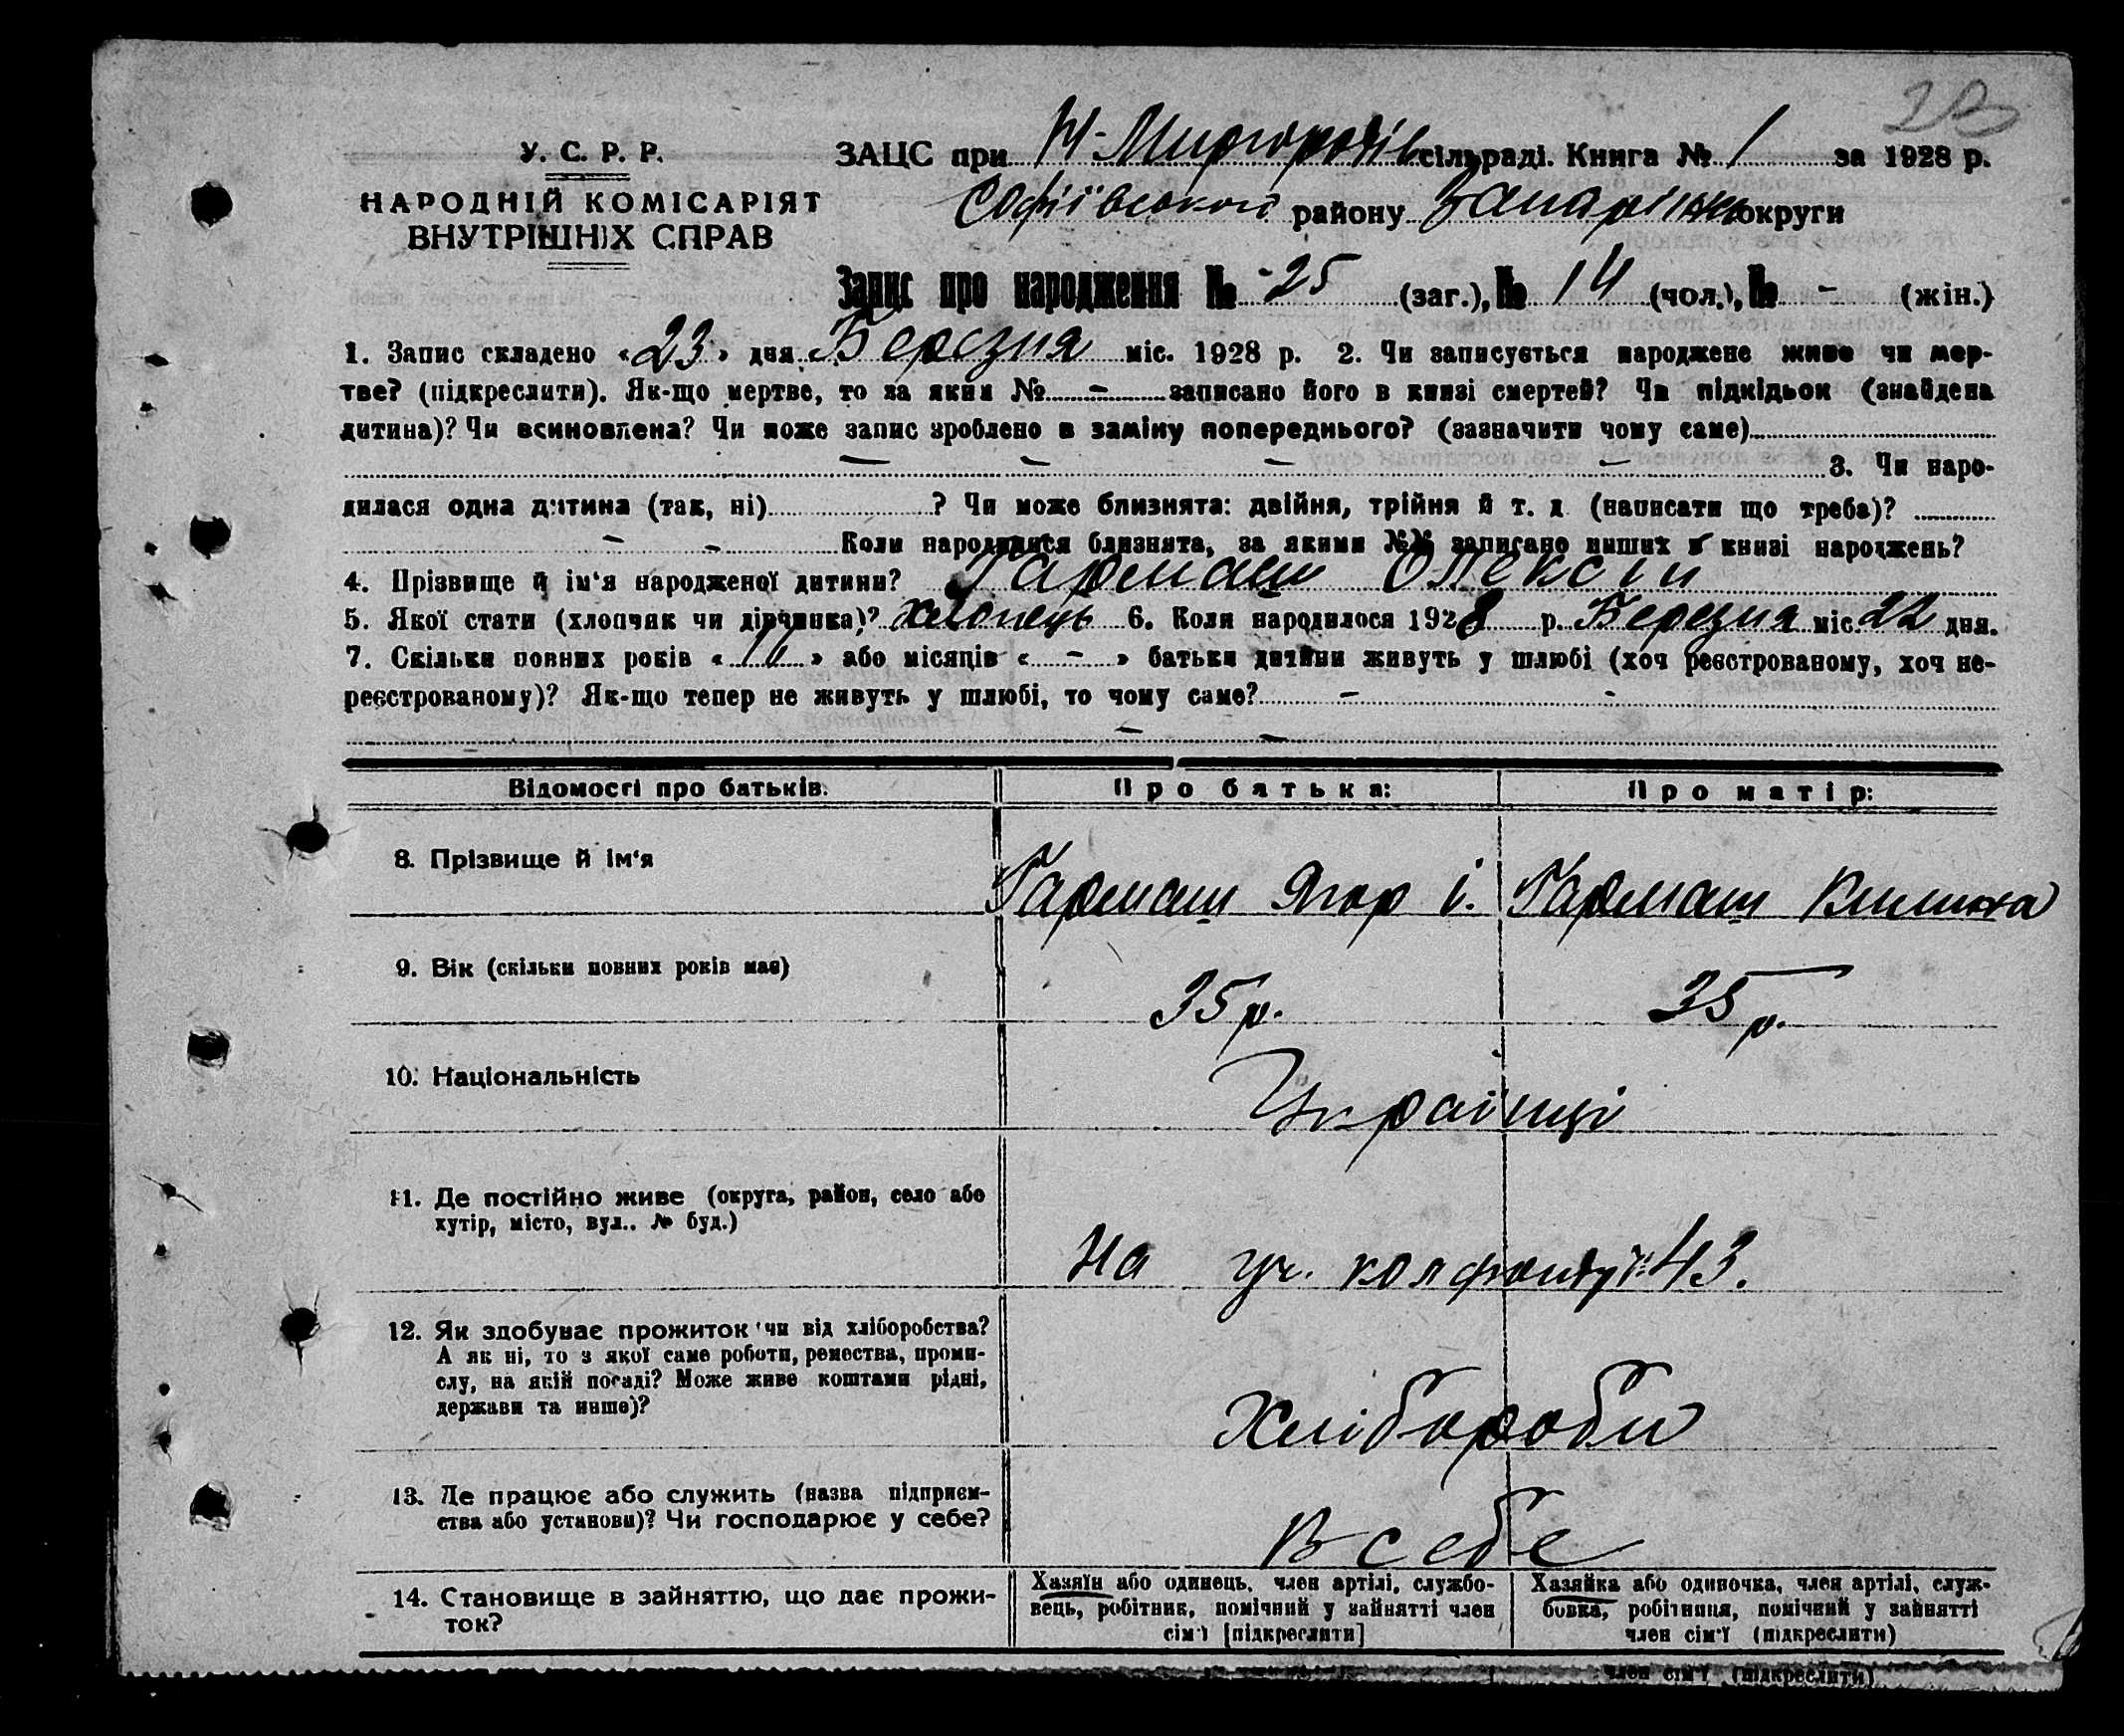 23
У. С. Р. Р.
НАРОДНІЙ КОМІСАРІЯТ
ВНУТРІШНІХ СПРАВ
ЗАЦС при Миргородів сільраді. Книга № 1 за 1928 р.
Софіївського району Запоріжж округи
Запис про народження № 25 (заг.), № 14 (чол.), № - (жін.)
1. Запис складено «23» дня Березня міс. 1928 р. 2. Чи записується народжене живе чи мер-
тве? (підкреслити). Як-що мертве, то за яким № - записано його в книзі смертей? Чи підкідьок (знайдена
дитина)? Чи всиновлена? Чи може запис зроблено в заміну попереднього? (зазначити чому саме)
— — — — 3. Чи наро-
дилася одна дитина (так, ні) ? Чи може близнята: двійня, трійня й т. д (написати що треба)?
- - Коли народилися близнята, за якими №№ записано инших в книзі народжень?
4. Прізвище й ім'я народженої дитини? Гармаш Олексій
5. Якої стати (хлопчак чи дівчинка)? Хлопець 6. Коли народилося 1928 р. Березня міс. 22 дня.
7. Скільки повних років «11» або місяців « - » батьки дитини живуть у шлюбі (хоч реєстрованому, хоч не-
реєстрованому)? Як-що тепер не живуть у шлюбі, то чому саме? - -
— —
Відомості про батьків. Про батька: Про матір:
8. Прізвище й ім'я Гармаш Ягор і. Гармаш
9. Вік (скільки повних років має) 35 р. 35 р.
10. Національність Українці
11. Де постійно живе (округа, район, село або
хутір, місто, вул.. № буд.)
На уч. колфонду № 43.
12. Як здобуває прожиток чи від хліборобства?
А як ні, то з якої саме роботи, ремества, проми-
слу, на якій посаді? Може живе коштами рідні,
держави та инше)?
Хлібороби
13. Де працює або служить (назва підприєм-
ства або установи)? Чи господарює у себе?
В себе
14. Становище в зайняттю, що дає прожи-
ток?
Хазяїн або одинець, член артілі, службо-
вець, робітник, помічний у зайнятті член
сім'ї [підкреслити]
Хазяйка або одиночка, член артілі, служ-
бовка, робітниця, помічний у зайнятті
член сім'ї (підкреслити)
член сім'ї (підкреслити)